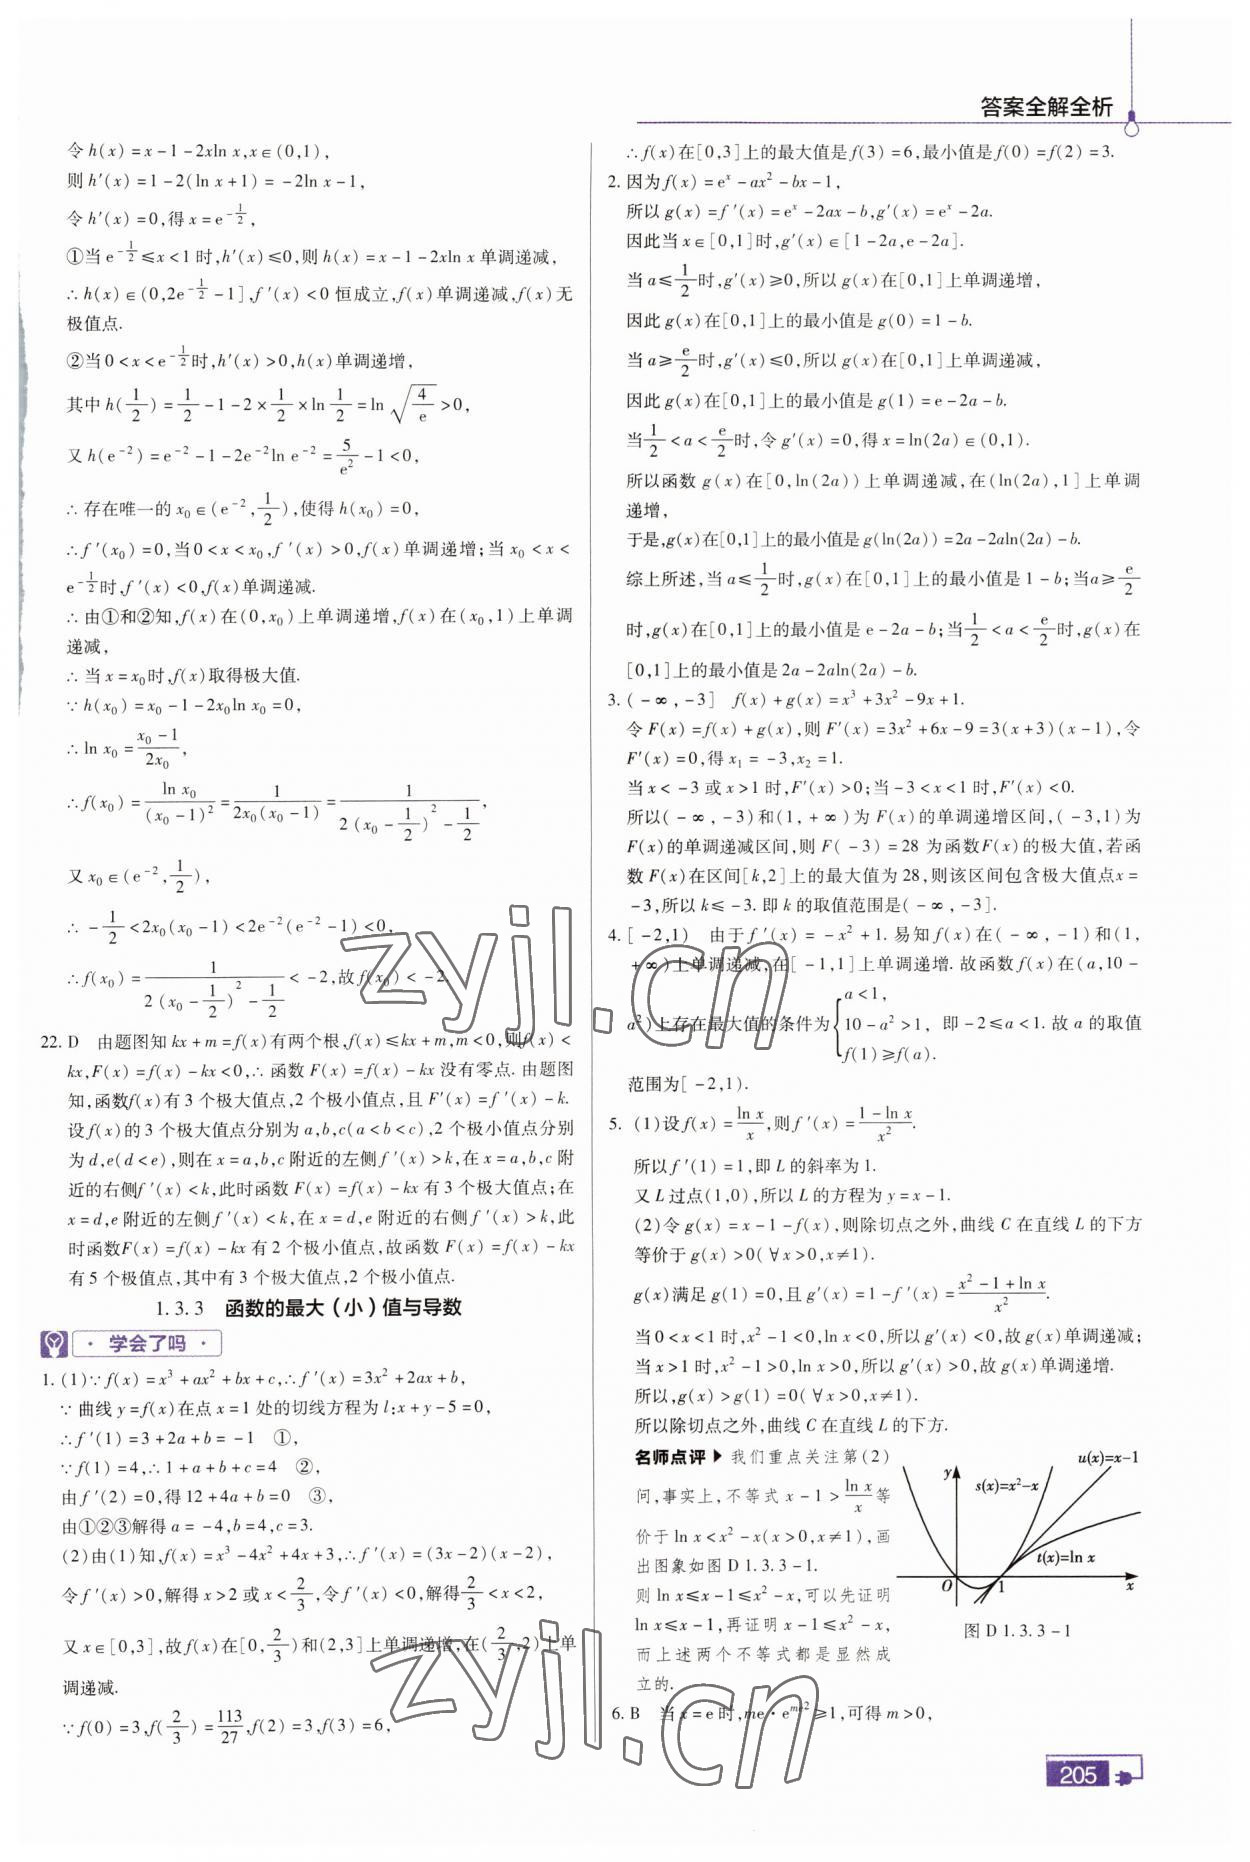 答案全解全析
令h(x)=x-1-2xln x,x∈(0,1),
则h′(x)=1-2(ln x+1)=-2ln x-1,
令h′(x)=0,得x=e^{-1/2},
①当e^{-1/2}≤x<1时,h′(x)≤0,则h(x)=x-1-2xln x单调递减,
∴h(x)∈(0,2e^{-1/2}-1],f′(x)<0恒成立,f(x)单调递减,f(x)无
极值点.
②当0<x<e^{-1/2}时,h′(x)>0,h(x)单调递增,
其中h(1/2)=1/2-1-2×1/2×ln 1/2=ln √(4/e)>0,
又h(e^{-2})=e^{-2}-1-2e^{-2}ln e^{-2}=5/e²-1<0,
∴存在唯一的x₀∈(e^{-2},1/2),使得h(x₀)=0,
∴f′(x₀)=0,当0<x<x₀,f′(x)>0,f(x)单调递增;当x₀<x<
e^{-1/2}时,f′(x)<0,f(x)单调递减.
∴由①和②知,f(x)在(0,x₀)上单调递增,f(x)在(x₀,1)上单调
递减,
∴当x=x₀时,f(x)取得极大值.
∵h(x₀)=x₀-1-2x₀ln x₀=0,
∴ln x₀=(x₀-1)/(2x₀),
∴f(x₀)=ln x₀/(x₀-1)²=1/(2x₀(x₀-1))=1/(2(x₀-1/2)²-1/2),
又x₀∈(e^{-2},1/2),
∴-1/2<2x₀(x₀-1)<2e^{-2}(e^{-2}-1)<0,
∴f(x₀)=1/(2(x₀-1/2)²-1/2)<-2,故f(x₀)<-2
22. D 由题图知kx+m=f(x)有两个根,f(x)≤kx+m,m<0,则f(x)<
kx,F(x)=f(x)-kx<0,∴函数F(x)=f(x)-kx没有零点.由题图
知,函数f(x)有3个极大值点,2个极小值点,且F′(x)=f′(x)-k.
设f(x)的3个极大值点分别为a,b,c(a<b<c),2个极小值点分别
为d,e(d<e),则在x=a,b,c附近的左侧f′(x)>k,在x=a,b,c附
近的右侧f′(x)<k,此时函数F(x)=f(x)-kx有3个极大值点;在
x=d,e附近的左侧f′(x)<k,在x=d,e附近的右侧f′(x)>k,此
时函数F(x)=f(x)-kx有2个极小值点,故函数F(x)=f(x)-kx
有5个极值点,其中有3个极大值点,2个极小值点.
1.3.3 函数的最大(小)值与导数
· 学会了吗 ·
1. (1)∵f(x)=x³+ax²+bx+c,∴f′(x)=3x²+2ax+b,
∵曲线y=f(x)在点x=1处的切线方程为l:x+y-5=0,
∴f′(1)=3+2a+b=-1 ①,
∵f(1)=4,∴1+a+b+c=4 ②,
由f′(2)=0,得12+4a+b=0 ③,
由①②③解得a=-4,b=4,c=3.
(2)由(1)知,f(x)=x³-4x²+4x+3,∴f′(x)=(3x-2)(x-2),
令f′(x)>0,解得x>2或x<2/3,令f′(x)<0,解得2/3<x<2,
又x∈[0,3],故f(x)在[0,2/3)和(2,3]上单调递增,在(2/3,2)上单
调递减.
∵f(0)=3,f(2/3)=113/27,f(2)=3,f(3)=6,
∴f(x)在[0,3]上的最大值是f(3)=6,最小值是f(0)=f(2)=3.
2. 因为f(x)=eˣ-ax²-bx-1,
所以g(x)=f′(x)=eˣ-2ax-b,g′(x)=eˣ-2a.
因此当x∈[0,1]时,g′(x)∈[1-2a,e-2a].
当a≤1/2时,g′(x)≥0,所以g(x)在[0,1]上单调递增,
因此g(x)在[0,1]上的最小值是g(0)=1-b.
当a≥e/2时,g′(x)≤0,所以g(x)在[0,1]上单调递减,
因此g(x)在[0,1]上的最小值是g(1)=e-2a-b.
当1/2<a<e/2时,令g′(x)=0,得x=ln(2a)∈(0,1).
所以函数g(x)在[0,ln(2a))上单调递减,在(ln(2a),1]上单调
递增,
于是,g(x)在[0,1]上的最小值是g(ln(2a))=2a-2aln(2a)-b.
综上所述,当a≤1/2时,g(x)在[0,1]上的最小值是1-b;当a≥e/2
时,g(x)在[0,1]上的最小值是e-2a-b;当1/2<a<e/2时,g(x)在
[0,1]上的最小值是2a-2aln(2a)-b.
3. (-∞,-3] f(x)+g(x)=x³+3x²-9x+1.
令F(x)=f(x)+g(x),则F′(x)=3x²+6x-9=3(x+3)(x-1),令
F′(x)=0,得x₁=-3,x₂=1.
当x<-3或x>1时,F′(x)>0;当-3<x<1时,F′(x)<0.
所以(-∞,-3)和(1,+∞)为F(x)的单调递增区间,(-3,1)为
F(x)的单调递减区间,则F(-3)=28为函数F(x)的极大值,若函
数F(x)在区间[k,2]上的最大值为28,则该区间包含极大值点x=
-3,所以k≤-3.即k的取值范围是(-∞,-3].
4. [-2,1) 由于f′(x)=-x²+1.易知f(x)在(-∞,-1)和(1,
+∞)上单调递减,在[-1,1]上单调递增.故函数f(x)在(a,10-
a²)上存在最大值的条件为{a<1, 10-a²>1, f(1)≥f(a). 即-2≤a<1.故a的取值
范围为[-2,1).
5. (1)设f(x)=ln x/x,则f′(x)=(1-ln x)/x².
所以f′(1)=1,即L的斜率为1.
又L过点(1,0),所以L的方程为y=x-1.
(2)令g(x)=x-1-f(x),则除切点之外,曲线C在直线L的下方
等价于g(x)>0(∀x>0,x≠1).
g(x)满足g(1)=0,且g′(x)=1-f′(x)=(x²-1+ln x)/x².
当0<x<1时,x²-1<0,ln x<0,所以g′(x)<0,故g(x)单调递减;
当x>1时,x²-1>0,ln x>0,所以g′(x)>0,故g(x)单调递增.
所以,g(x)>g(1)=0(∀x>0,x≠1).
所以除切点之外,曲线C在直线L的下方.
名师点评▶ 我们重点关注第(2)
问,事实上,不等式x-1>ln x/x等
价于ln x<x²-x(x>0,x≠1),画
出图象如图D 1.3.3-1.
则ln x≤x-1≤x²-x,可以先证明
ln x≤x-1,再证明x-1≤x²-x,
而上述两个不等式都是显然成
立的.
y
s(x)=x²-x
u(x)=x-1
t(x)=ln x
O
1
x
图D 1.3.3-1
6. B 当x=e时,me·e^{me²}≥1,可得m>0,
205
zyjl.cn
zyjl.cn